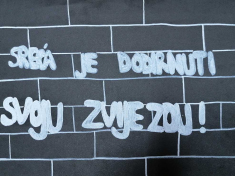 SREĆA JE DODIRNUTI
SVOJU ZVIJEZDU!